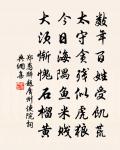 數年百姓受飢荒
太守貪殘似虎狼
今日海隅魚米賤
大須慚愧石榴黃
鄭愚醉題廣州使院詞
典網集